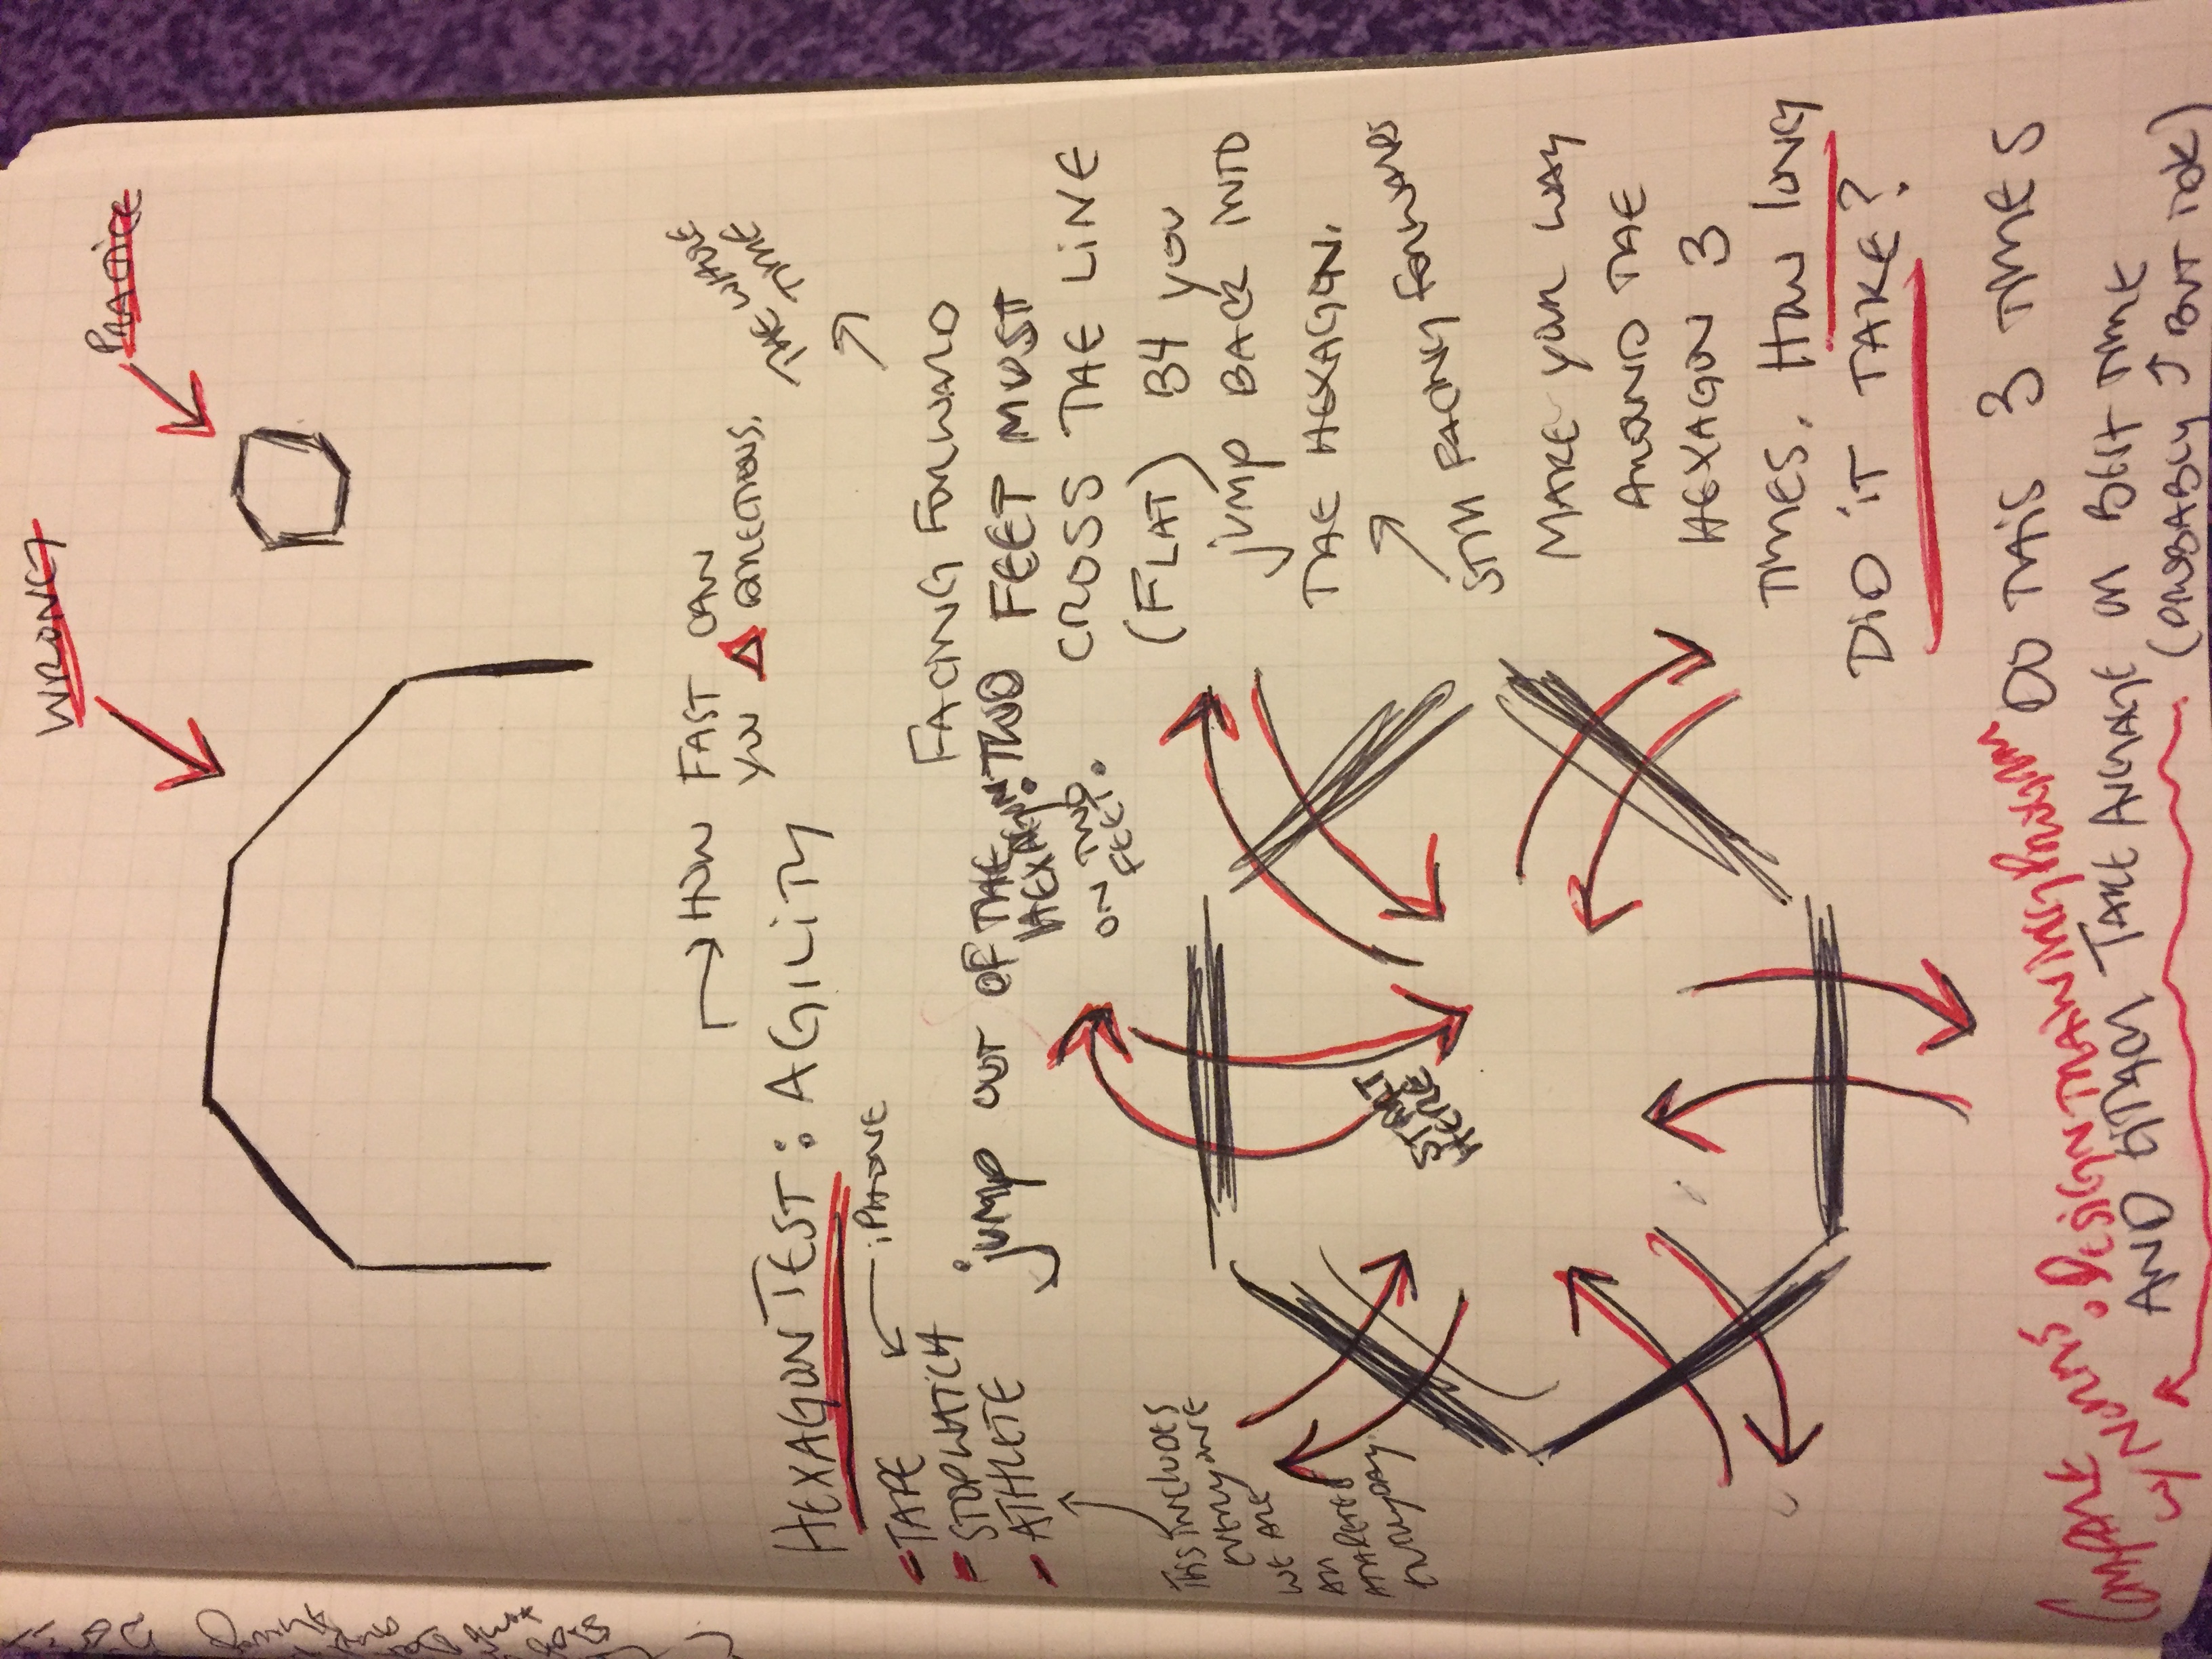 WRONG
PRACTICE
HOW FAST CAN
YOU Δ DIRECTIONS.
THE WHOLE
THE TIME
HEXAGON TEST: AGILITY
- TAPE
- STOPWATCH
iPHONE
- ATHLETE
THIS INCLUDES
EVERYONE
WE ARE
ALL
ATHLETES
EVERYDAY.
jUMP OUT OF THE
HEXAGON.
ON TWO
FEET.
FACING FORWARD
TWO FEET MUST
CROSS THE LINE
(FLAT) B4 YOU
jUMP BACK INTO
THE HEXAGON.
STILL FACING FORWARDS
MAKE YOUR WAY
AROUND THE
HEXAGON 3
TIMES. HOW LONG
DID iT TAKE?
START
HERE
DO THIS 3 TIMES
AND EITHER TAKE AVERAGE OR BEST TIME
(PROBABLY BUT IDK)
COMPARE
W/ NORMS. DESIGN TRAINING PROGRAM